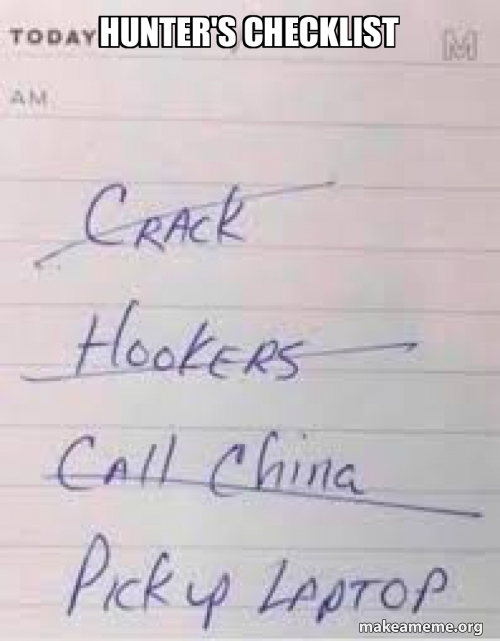 HUNTER'S CHECKLIST
TODAY M
AM
CRACK
HOOKERS
CAll China
Pick up LAPTOP
makeameme.org